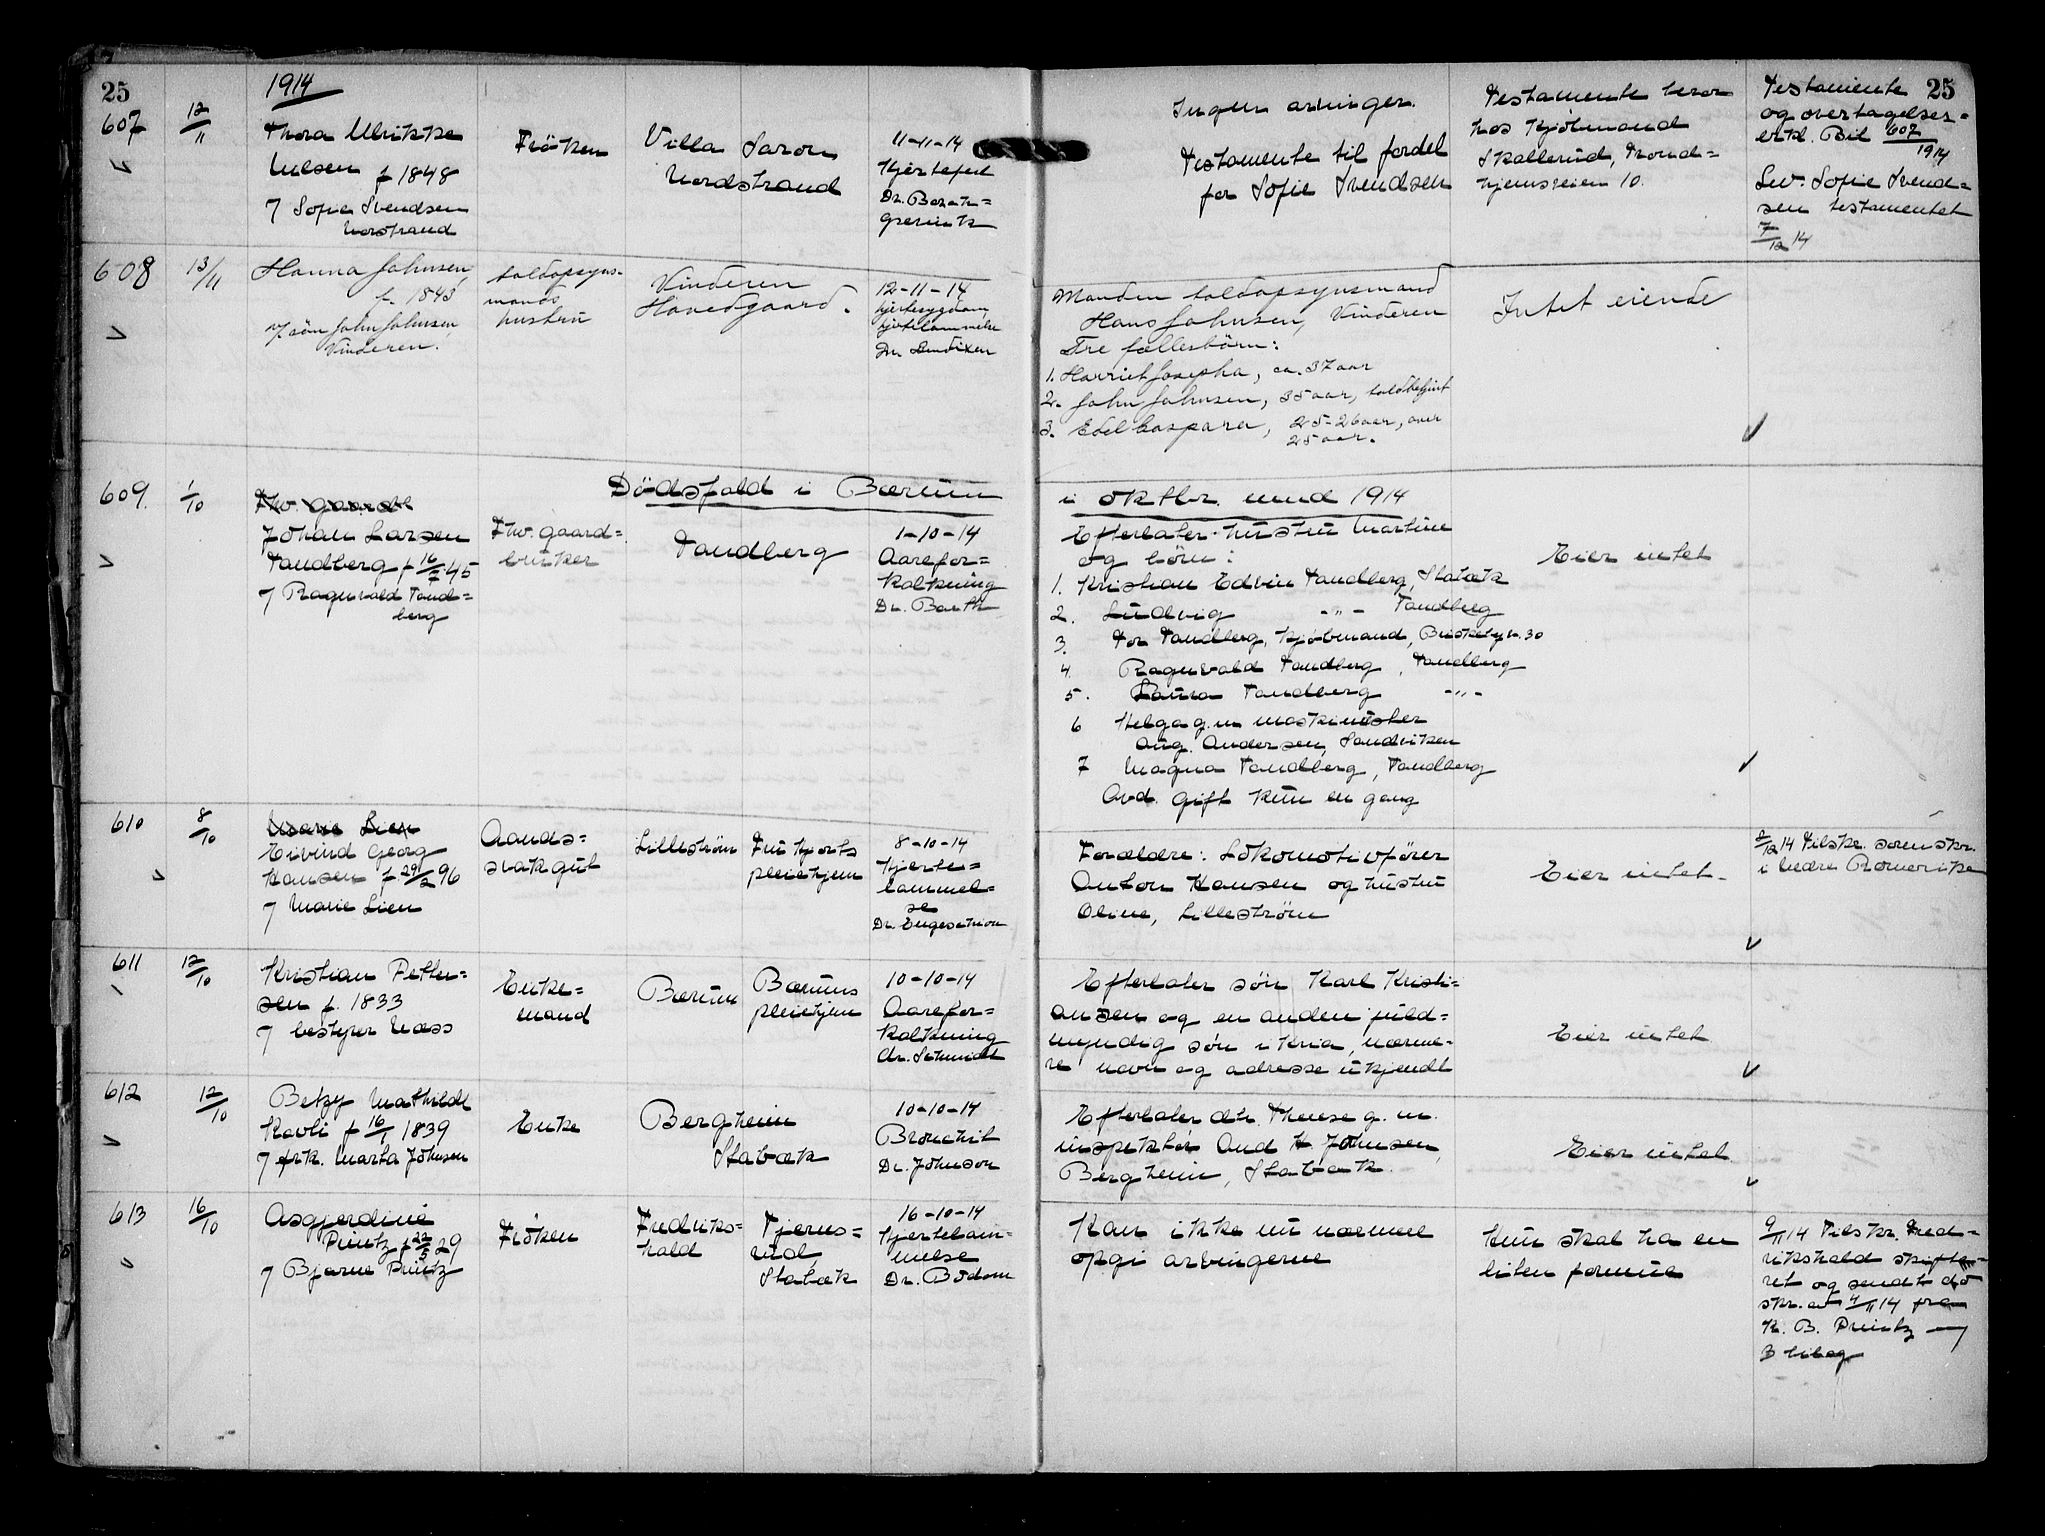 25
1914
607
12/11
Thora Ulrikke
Nilsen f 1848
7 Sofie Svendsen
Norstrand
Fröken
Villa Saron
Nordstrand
11-11-14
Hjertefeil
Ingen arvinger.
Testamente til fordel
for Sofie Svendsen
Testamente beror
hos Kjöbmand
Skallerud, Trond=
hjemsveien 10.
Testamente 25
og overtagelses=
erkl. Bil 607/1914
Lev. Sofie Svend=
sen testamentet
7/12 14
608
13/11
Hanna Johnsen,
f. 1843
7 sön John Johnsen,
Vinderen.
toldopsyns-
mands
hustru
Vinderen
Hovedgaard.
12-11-14
hjertesygdom
hjertelammelse
Dr.
Manden toldopsynsmand
Hans Johnsen, Vinderen
Tre fællesbörn:
1. Harriet Josepha, ca. 37 aar
2. John Johnsen, 35 aar, toldbetjent
3. Edel Caspara, 25-26 aar, over
25 aar.
Intet eiende
✓
Dödsfald i Bærum
i oktbr. mnd 1914
609.
1/10
Fhv. gaardb
Johan Larsen
Tandberg f 16/7 45
7 Ragnvald Tand=
berg
Fhv. gaard=
bruker
Tandberg
1-10-14
Aarefor=
kalkning
Dr. Barth
Efterlater hustru Martine
og börn:
1. Kristian Edvin Tandberg, Stabæk
2. Ludvig -"- Tandberg
3. Tor Tandberg, Kjöbmand, 30
4. Ragnvald Tandberg, Tandberg
5. Laura Tandberg -"-
6 Helga g.m maskinister
Aug. Andersen, Sandviken
7 Magna Tandberg, Tandberg
Avd. gift kun en gang
Eier intet
✓
610
8/10
Marie Lien
Eivind Georg
Hansen f. 29/2 96
7 Marie Lien
Aands=
svak gut
Lilleström
Fru Hjorts
pleiehjem
8-10-14
Hjerte=
lammel=
se
Dr. Engesethion
Forældre: Lokomotivförer
Anton Hansen og hustru
Oline, Lilleström
Eier intet
2/12 14 Tilskr. sorenskr.
i Nedre Romerike
✓
611
12/10
Kristian Petter=
sen f. 1833
7 bestyrer Næss
Enke=
mand
Bærum
Bærums
pleiehjem
10-10-14
Aarefor=
kalkning
Dr. Schmidt
Efterlater sön Karl Kristi=
ansen og en anden fuld=
myndig sön i Kria, nærme=
re navn og adresse ukjendt
Eier intet
✓
612
12/10
Betzy Mathilde
Kavli f 16/1 1839
7 frk. Marta Johnsen
Enke
Bergheim
Stabæk
10-10-14
Bronchit
Dr. Johnson
Efterlater dtr. Therese g. m.
inspektör And H Johnsen,
Bergheim, Stabæk.
Eier intet
✓
613
16/10
Asgjerdine
Printz f 22/5 29
7 Bjarne Printz
Fröken
Fredriks=
hald
Tjerns=
rud,
Stabæk
16-10-14
Hjertelam=
melse
Dr. Bodom
Kan ikke nu nærmere
opgi arvingerne
Hun skal ha en
liten formue
9/11 14 Tilskr. Fred=
rikshald skifte=
ret og sendt do
skr. av 4/11 14 fra
K. B. Printz
3 bilag